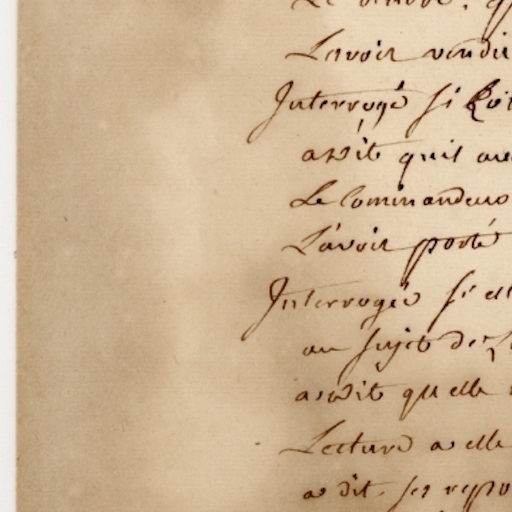 Lavoir vendu
Interrogé si
a dit quil
Le Commandeur
Lavoir porté
Interrogée si
au sujet de
a dit qu elle
Lecture a elle
a dit. ses